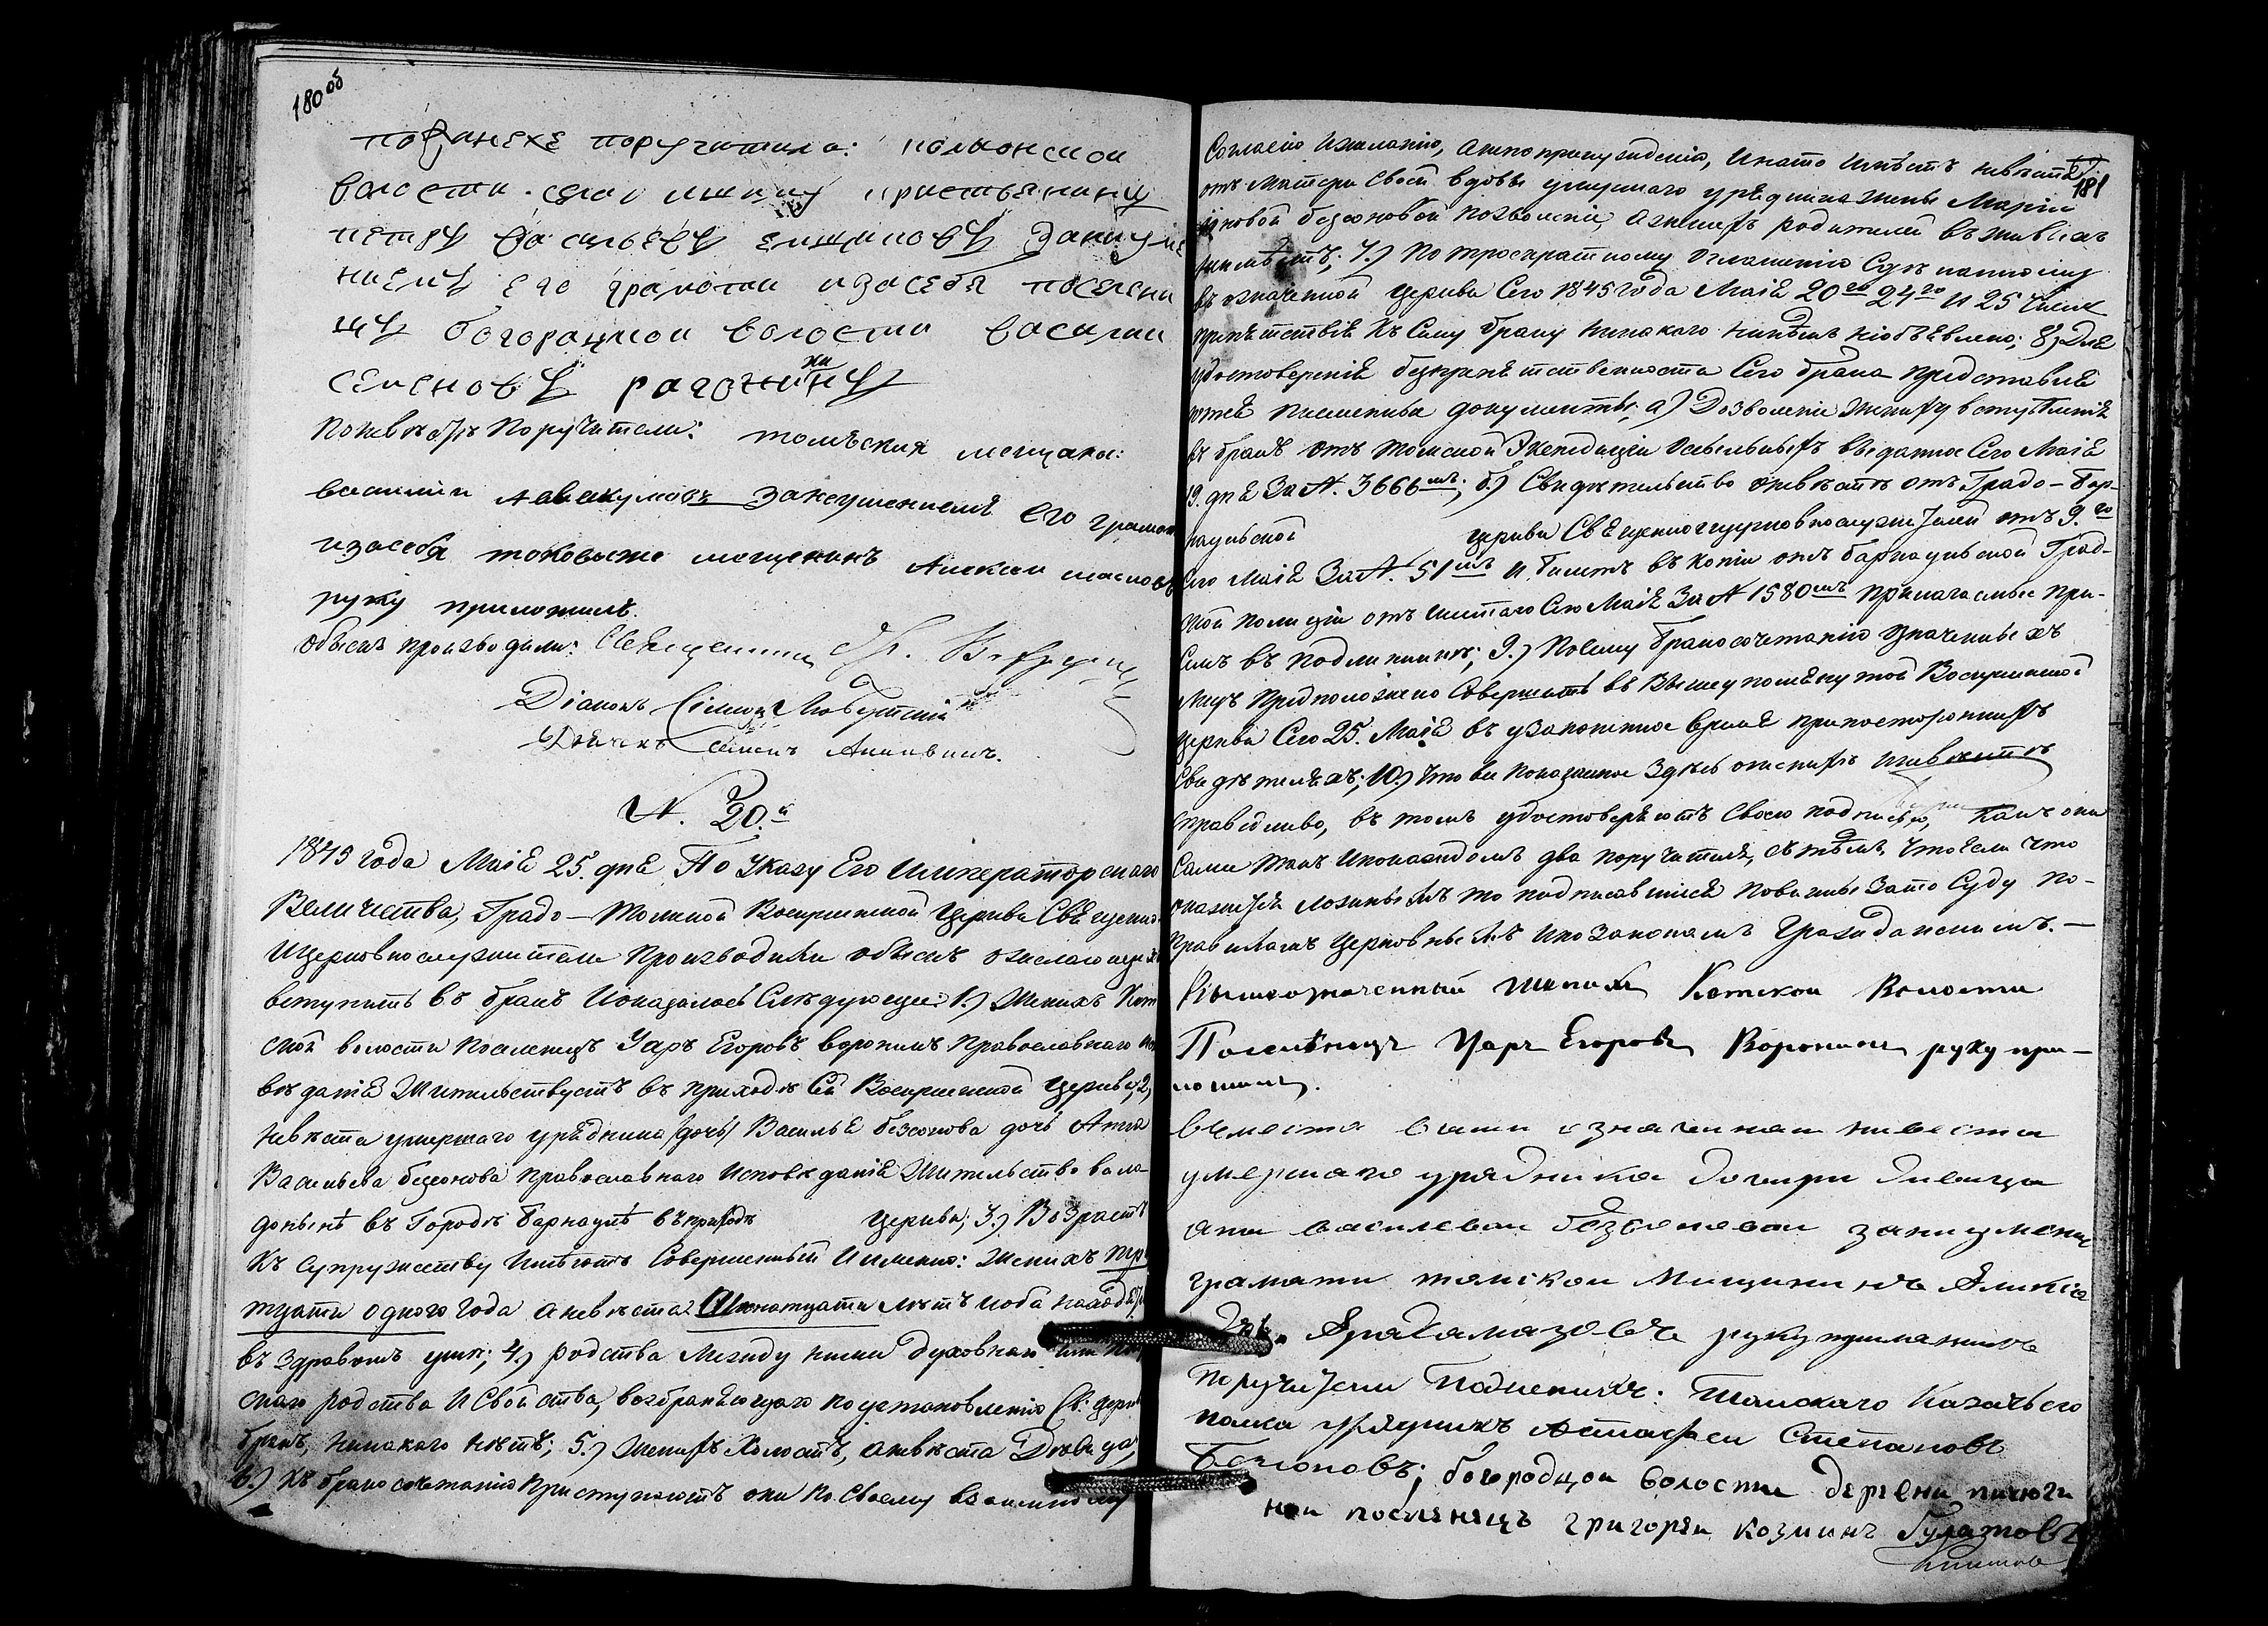 180 об
по женехе поручители:
волости крестьянину
петру васильеву
неемъ его грамоти и засебя поселени
цу богородцкои волости васили
семенову рагожкину
По невѣстѣ Поручители: томъския мещана:
василии Аввакумовъ занеумениемъ его грамот
изасебя таковыже мещенинъ Алексеи
руку приложилъ
Обыскъ производили: Священникъ
Діаконъ Симеонъ
Дьячекъ Семенъ
N. 20.й
1845 года Маія 25. дня По Указу Его Императорскаго
Величества, Градо-Томской Воскресенской Церкви Священно
Ицерковнослужители производили обыскъ ожелающихъ
вступить въ бракъ Иоказалось Слѣдующее: 1.) Женихъ Кет
ской волости Поселенецъ Уаръ Егоровъ воронинъ Православнаго испо
вѣданія Жительствуетъ въ приходѣ Сей Воскресенской Церкви, 2.)
Невѣста умершаго урядника /дочь/ Василья безсонова дочь Анна
Васильева безсонова православнаго исповѣданія Жительствовала
донынѣ въ Городѣ Барнаулѣ въ приходѣ Церкви, 3.) Возрастъ
Къ Супружеству Имѣютъ Совершенный Именно: Женихъ Три
тцати одного года аневѣста лѣтъ иоба находятся
въ здравомъ умѣ; 4.) родства Между ними духовнаго или плот
скаго родства И Свойства, возбраняющаго поустановленію Св: Церкви
бракъ, никакого нѣтъ; 5.) Женихъ Холостъ, аневѣста Дѣвица,
6.) Къ бракосочетанію Приступаютъ они по Своему взаимному
181
Согласію Ижеланію, анепопринужденію, Инато Имѣетъ невѣста
отъ Матери своей вдовы умершаго урядника жены Маріи
безсоновой позволеніе, аженихъ родителей въживыхъ
неимѣетъ; 7.) По троекратному Оглашенію Сдѣланному
въ означенной Церкви Сего 1845 года Маія 20го 24го и 25 чиселъ
препятствія Къ Сему браку Никакого никѣмъ необъявлено; 8.) Для
удостовѣренія безпрепятственности Сего брака представлены
письменные документы: а) Дозволеніе Жениху вступленія
въ бракъ отъ Томской Экспедиціи Ссыльныхъ выданное Сего Маія
19. дня За N. 3666мъ; б.) Свидѣтельство оневѣстѣ отъ Градо-Бар-
наульской Церкви Священноцерковнослужителей отъ 9.го
Сего Маія За N. 51мъ И билетъ въ копіи отъ барнаульской Град-
ской полиціи отъ Сего Маія За N 1580мъ прилагаемые при-
Семъ въ подлинникѣ; 9.) Посему бракосочетаніе означенныхъ
лицъ предположено Совершить въ Вышеупомянутой Воскресенской
Церкви Сего 25. Маія въ узаконенное время припостороннихъ
Свидѣтеляхъ; 10.) Что все показанное Здѣсь оженихѣ Иневѣстѣ
справедливо, въ томъ удостовѣряютъ Своею подписью, какъ они
Сами такъ Ипокаждомъ два поручителя, съ тѣмъ, что если что
окажется ложнымъ то подписавшіеся повинны Зато Суду по-
Правиламъ Церковнымъ Ипо Законамъ Гражданскимъ.—
Вышеозначенный женихъ Кетской Волости
Поселѣнецъ Уаръ Егоровъ Воронинъ руку при-
ложилъ.
въместа выше означеннои невесты
умершаго урядника дочери девицы
васильевои Безсоновои занеумениемъ
грамоти томскои Мещининъ
руку приложилъ
Поручители По женихѣ: Томскаго Казачьего
полка урядникъ Астафеи Степановъ
Безсоновъ; богородцои волости деревни
нои поселенецъ григореи козминъ